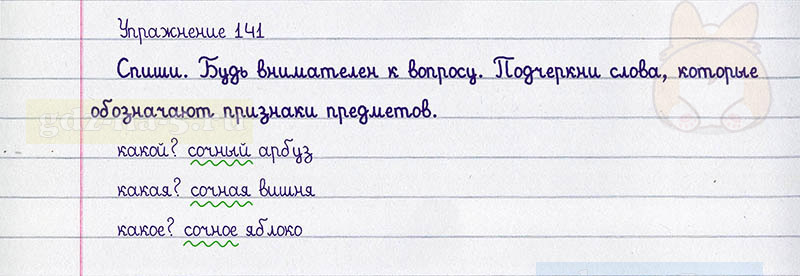 Упражнение 141
Спиши. Будь внимателен к вопросу. Подчеркни слова, которые
обозначают признаки предметов.
gdz-na-5.ru
какой? сочный арбуз
какая? сочная вишня
какое? сочное яблоко